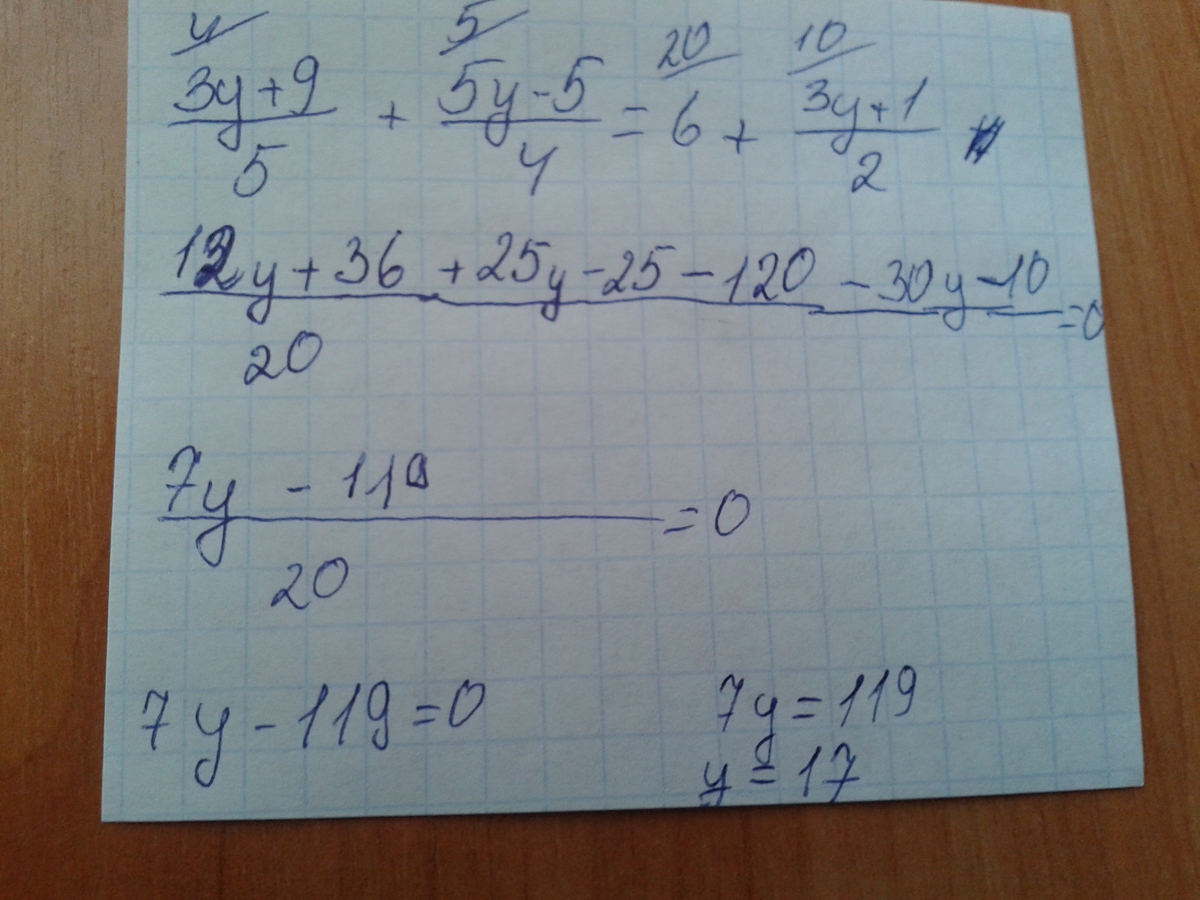 4 5 20 10
(3y+9)/5 + (5y-5)/4 = 6 + (3y+1)/2
(12y+36+25y-25-120-30y-10)/20 = 0
(7y - 119)/20 = 0
7y - 119 = 0
7y = 119
y = 17